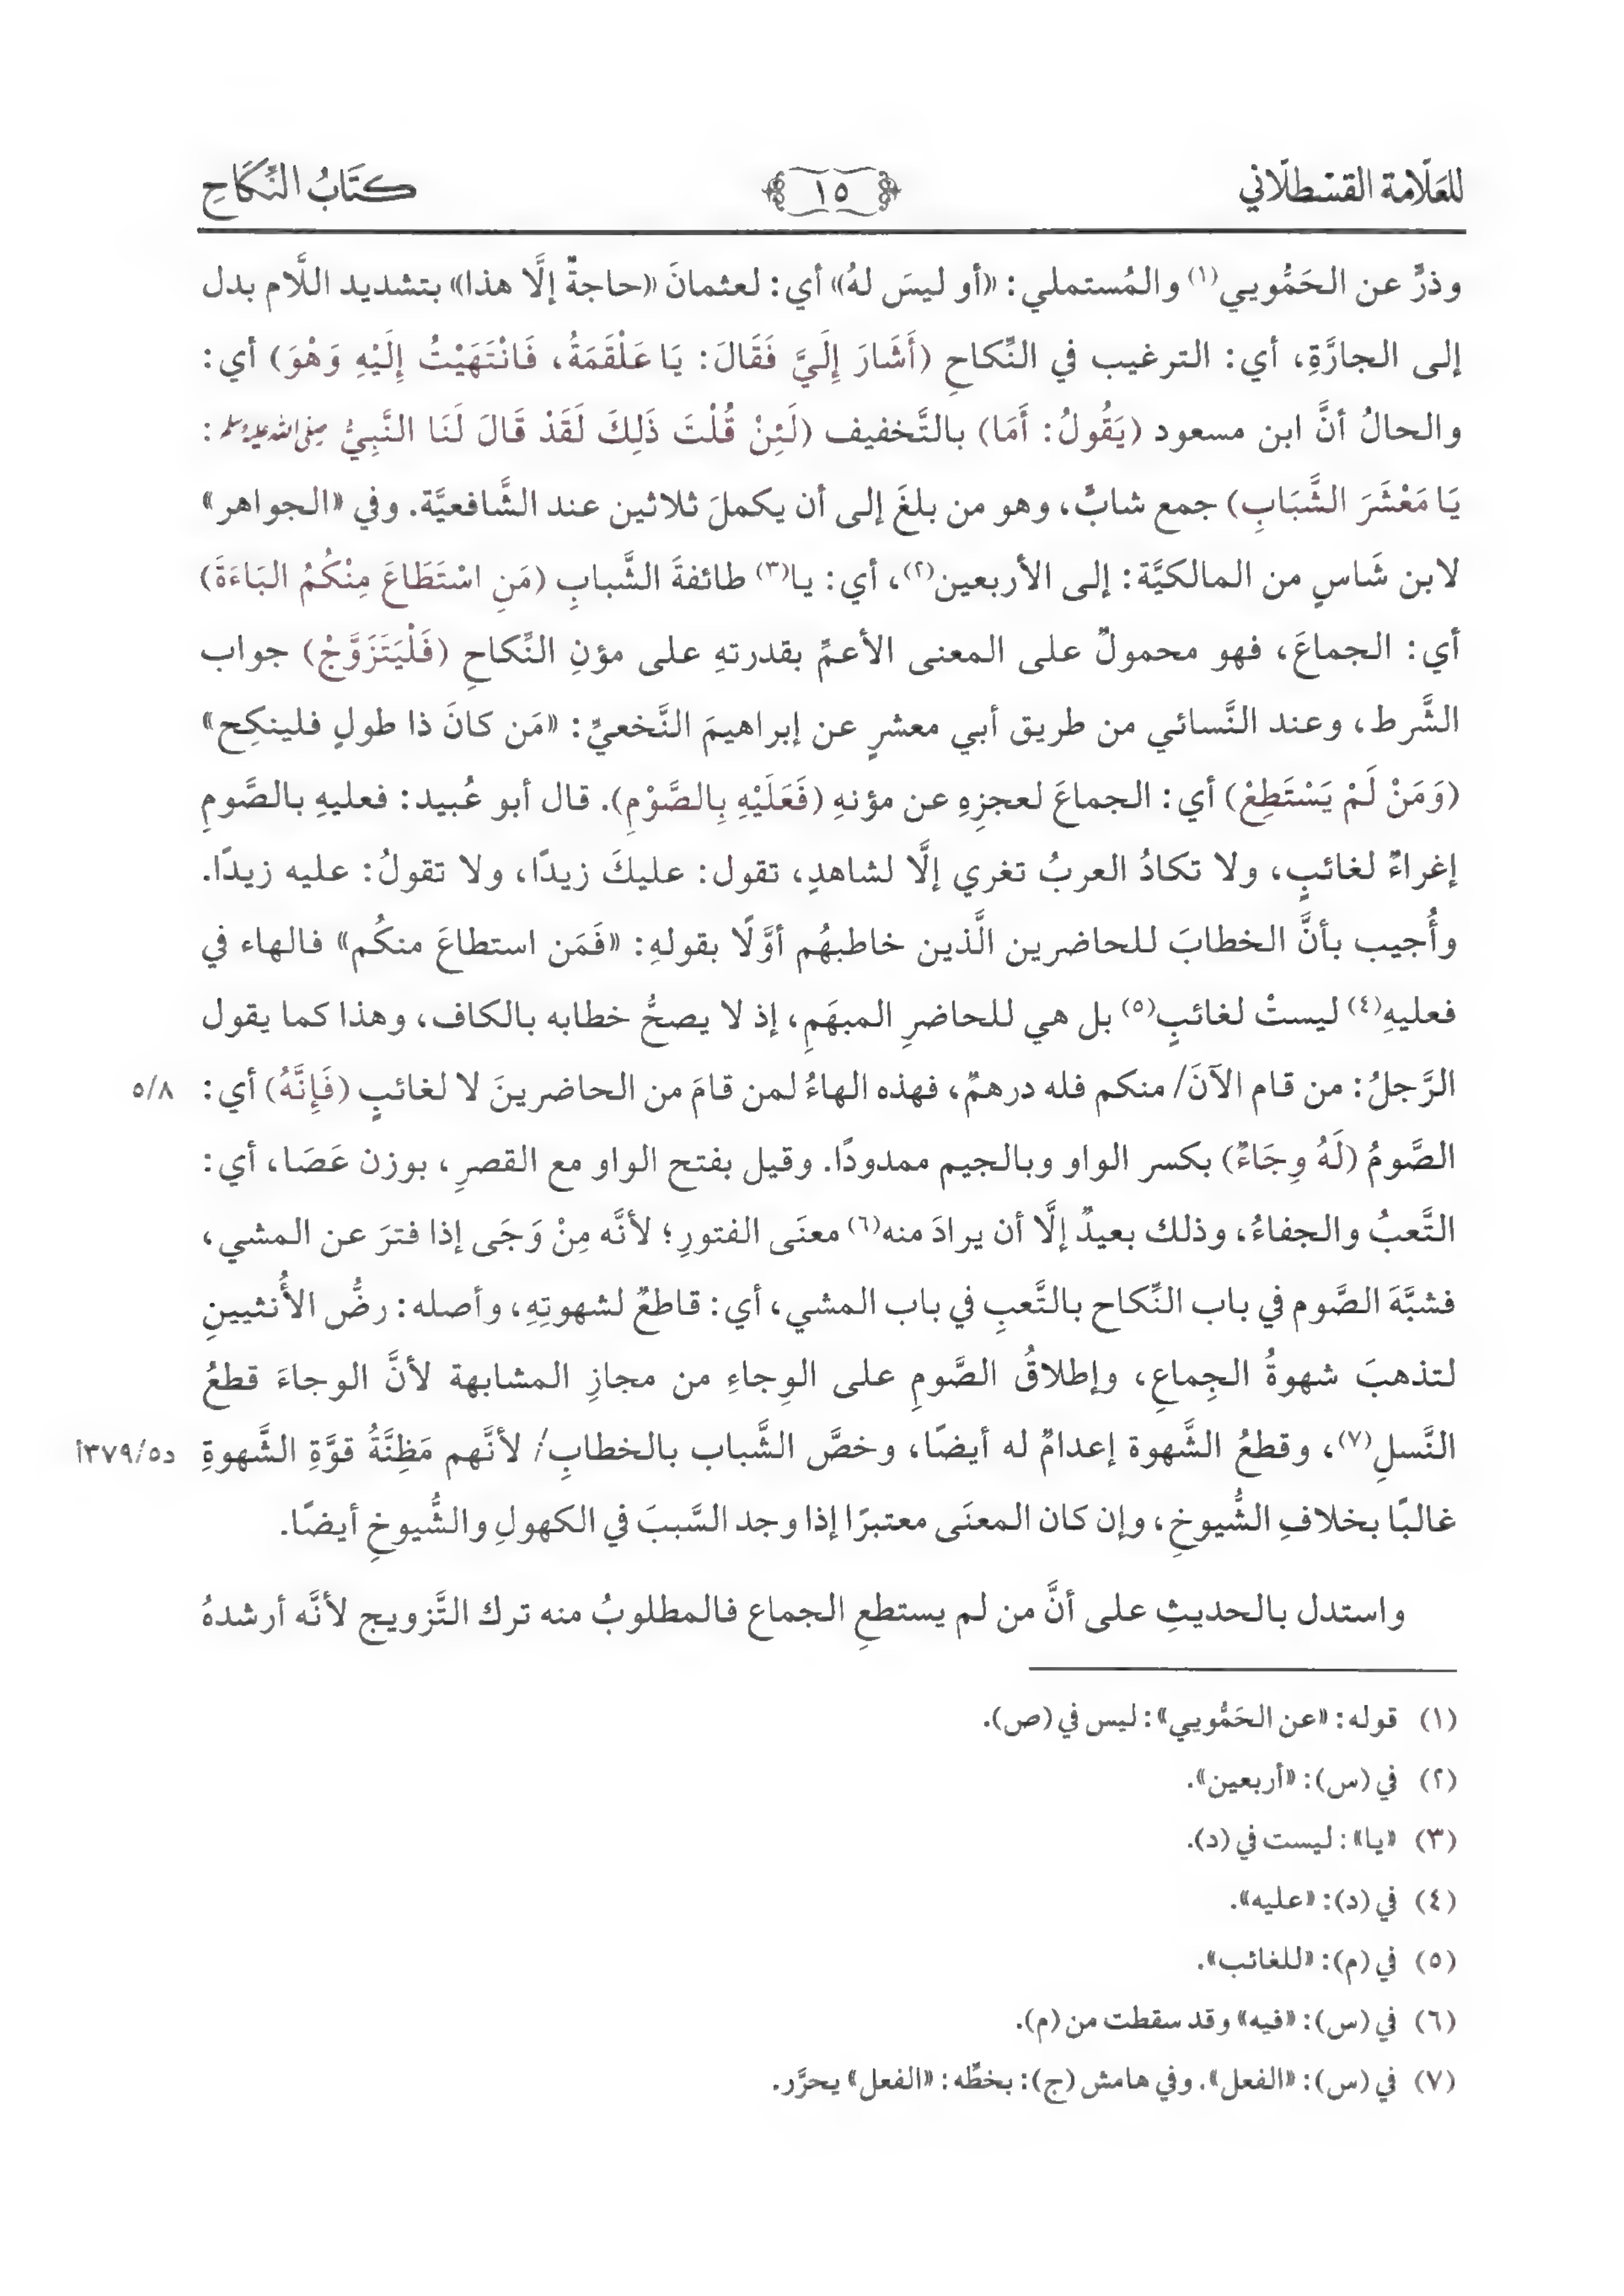 للعلّامة القسطلّاني
١٥
كتَابُ النِّكَاحِ
وذرٍّ عن الحَمُّويي(١) والمُستملي: «أو ليسَ لهُ» أي: لعثمانَ «حاجةٌ إلَّا هذا» بتشديد اللَّام بدل
إلى الجارَّةِ، أي: الترغيب في النِّكاحِ (أَشَارَ إِلَيَّ فَقَالَ: يَا عَلْقَمَةُ، فَانْتَهَيْتُ إِلَيْهِ وَهْوَ) أي:
والحالُ أنَّ ابن مسعود (يَقُولُ: أَمَا) بالتَّخفيف (لَئِنْ قُلْتَ ذَلِكَ لَقَدْ قَالَ لَنَا النَّبِيُّ صلى الله عليه وسلم:
يَا مَعْشَرَ الشَّبَابِ) جمع شابٍّ، وهو من بلغَ إلى أن يكملَ ثلاثين عند الشَّافعيَّة. وفي «الجواهر»
لابن شَاسٍ من المالكيَّة: إلى الأربعين(٢)، أي: يا(٣) طائفةَ الشَّبابِ (مَنِ اسْتَطَاعَ مِنْكُمُ البَاءَةَ)
أي: الجماعَ، فهو محمولٌ على المعنى الأعمِّ بقدرتهِ على مؤنِ النِّكاحِ (فَلْيَتَزَوَّجْ) جواب
الشَّرط، وعند النَّسائي من طريق أبي معشرٍ عن إبراهيمَ النَّخعيِّ: «مَن كانَ ذا طولٍ فلينكِح»
(وَمَنْ لَمْ يَسْتَطِعْ) أي: الجماعَ لعجزِهِ عن مؤنهِ (فَعَلَيْهِ بِالصَّوْمِ). قال أبو عُبيد: فعليهِ بالصَّومِ
إغراءٌ لغائبٍ، ولا تكادُ العربُ تغري إلَّا لشاهدٍ، تقول: عليكَ زيدًا، ولا تقولُ: عليه زيدًا.
وأُجيب بأنَّ الخطابَ للحاضرين الَّذين خاطبهُم أوَّلًا بقولهِ: «فَمَن استطاعَ منكُم» فالهاء في
فعليهِ(٤) ليستْ لغائبٍ(٥) بل هي للحاضرِ المبهَمِ، إذ لا يصحُّ خطابه بالكاف، وهذا كما يقول
الرَّجلُ: من قام الآنَ/ منكم فله درهمٌ، فهذه الهاءُ لمن قامَ من الحاضرينَ لا لغائبٍ (فَإِنَّهُ) أي: ٥/٨
الصَّومُ (لَهُ وِجَاءٌ) بكسر الواو وبالجيم ممدودًا. وقيل بفتح الواو مع القصرِ، بوزن عَصَا، أي:
التَّعبُ والجفاءُ، وذلك بعيدٌ إلَّا أن يرادَ منه(٦) معنَى الفتورِ؛ لأنَّه مِنْ وَجَى إذا فترَ عن المشي،
فشبَّهَ الصَّوم في باب النِّكاح بالتَّعبِ في باب المشي، أي: قاطعٌ لشهوتِهِ، وأصله: رضُّ الأُنثيينِ
لتذهبَ شهوةُ الجِماعِ، وإطلاقُ الصَّومِ على الوِجاءِ من مجازِ المشابهة لأنَّ الوجاءَ قطعُ
النَّسلِ(٧)، وقطعُ الشَّهوة إعدامٌ له أيضًا، وخصَّ الشَّباب بالخطابِ/ لأنَّهم مَظِنَّةُ قوَّةِ الشَّهوةِ د٣٧٩/٥أ
غالبًا بخلافِ الشُّيوخِ، وإن كان المعنَى معتبرًا إذا وجد السَّببَ في الكهولِ والشُّيوخِ أيضًا.
واستدل بالحديثِ على أنَّ من لم يستطعِ الجماع فالمطلوبُ منه ترك التَّزويج لأنَّه أرشدهُ
(١) قوله: «عن الحَمُّويي»: ليس في (ص).
(٢) في (س): «أربعين».
(٣) «يا»: ليست في (د).
(٤) في (د): «عليه».
(٥) في (م): «للغائب».
(٦) في (س): «فيه» وقد سقطت من (م).
(٧) في (س): «الفعل». وفي هامش (ج): بخطِّه: «الفعل» يحرَّر.